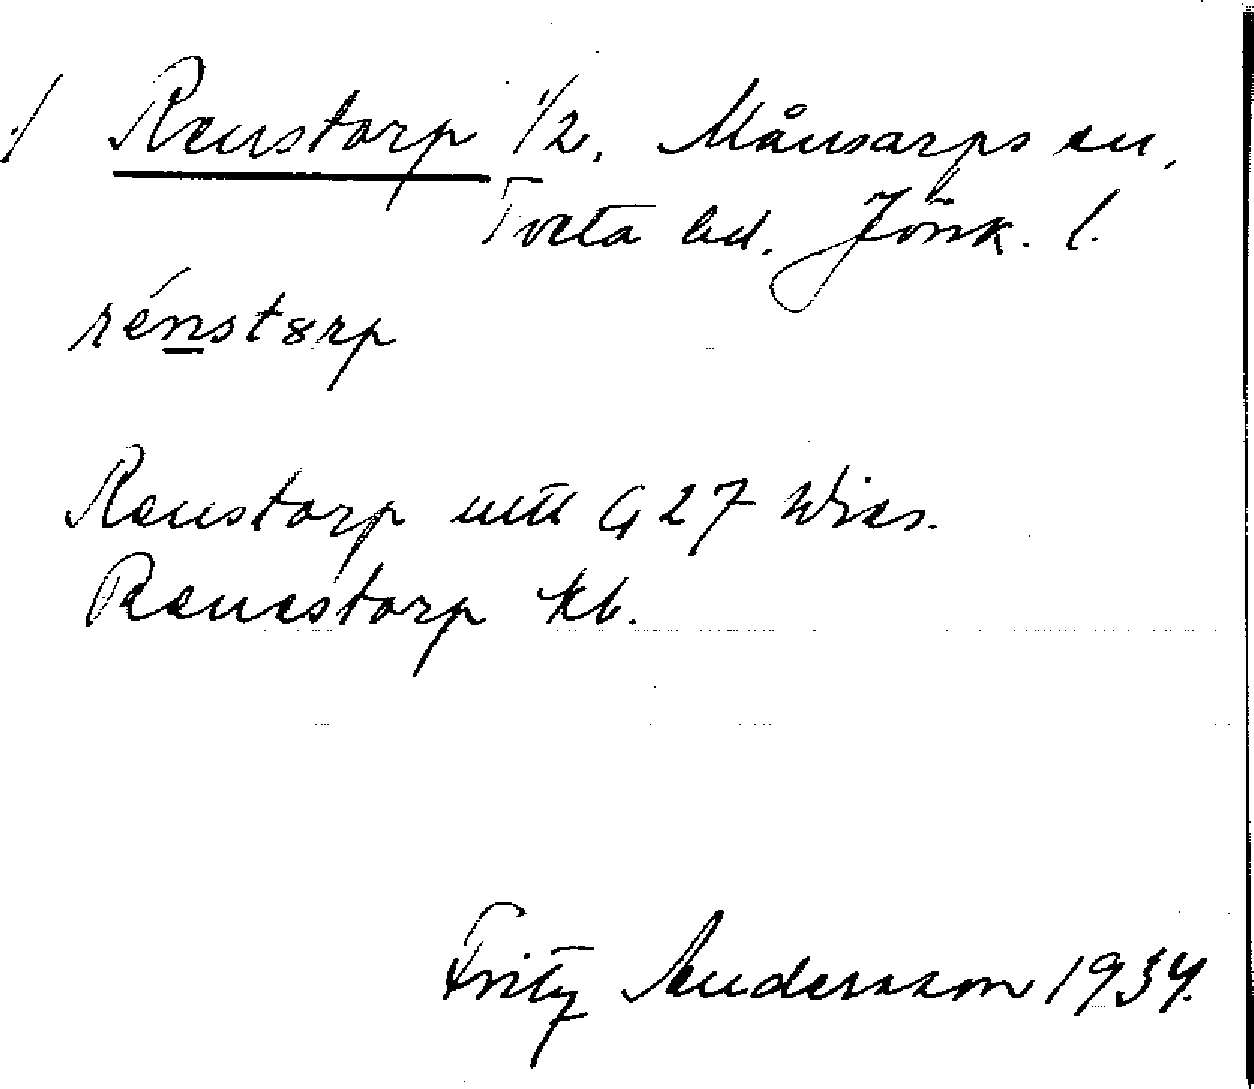 ./ Renstorp 1/2. Månsarps sn.
Tveta hd. Jönk. l.
rénstørp
Renstorp utt G 27 Wies.
Renestorp kb.
Fritz Andersson 1934.